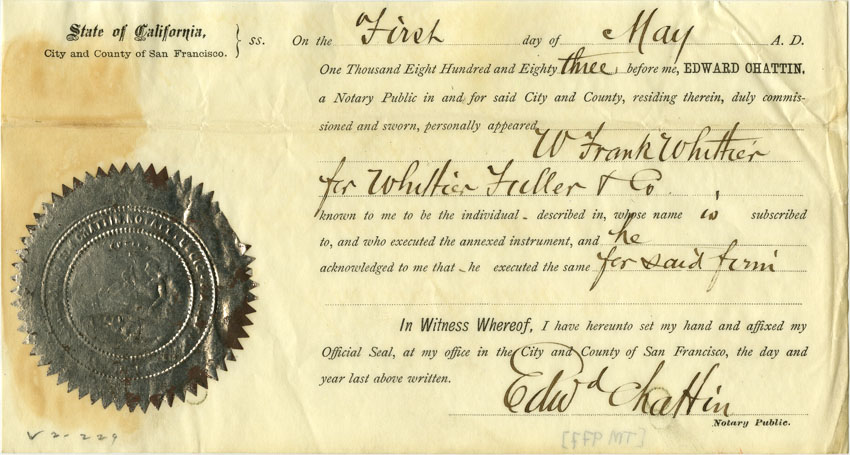 State of California,
City and County of San Francisco. } ss.
On the First day of May A. D.
One Thousand Eight Hundred and Eighty three, before me, EDWARD CHATTIN,
a Notary Public in and for said City and County, residing therein, duly commis-
sioned and sworn, personally appeared
W Frank Whittier
for Whittier Fuller & Co
known to me to be the individual - described in, whose name is subscribed
to, and who executed the annexed instrument, and he
acknowledged to me that - he executed the same for said firm
In Witness Whereof, I have hereunto set my hand and affixed my
Official Seal, at my office in the City and County of San Francisco, the day and
year last above written.
Edwd Chattin
Notary Public.
V 2-229
[FFP MT]